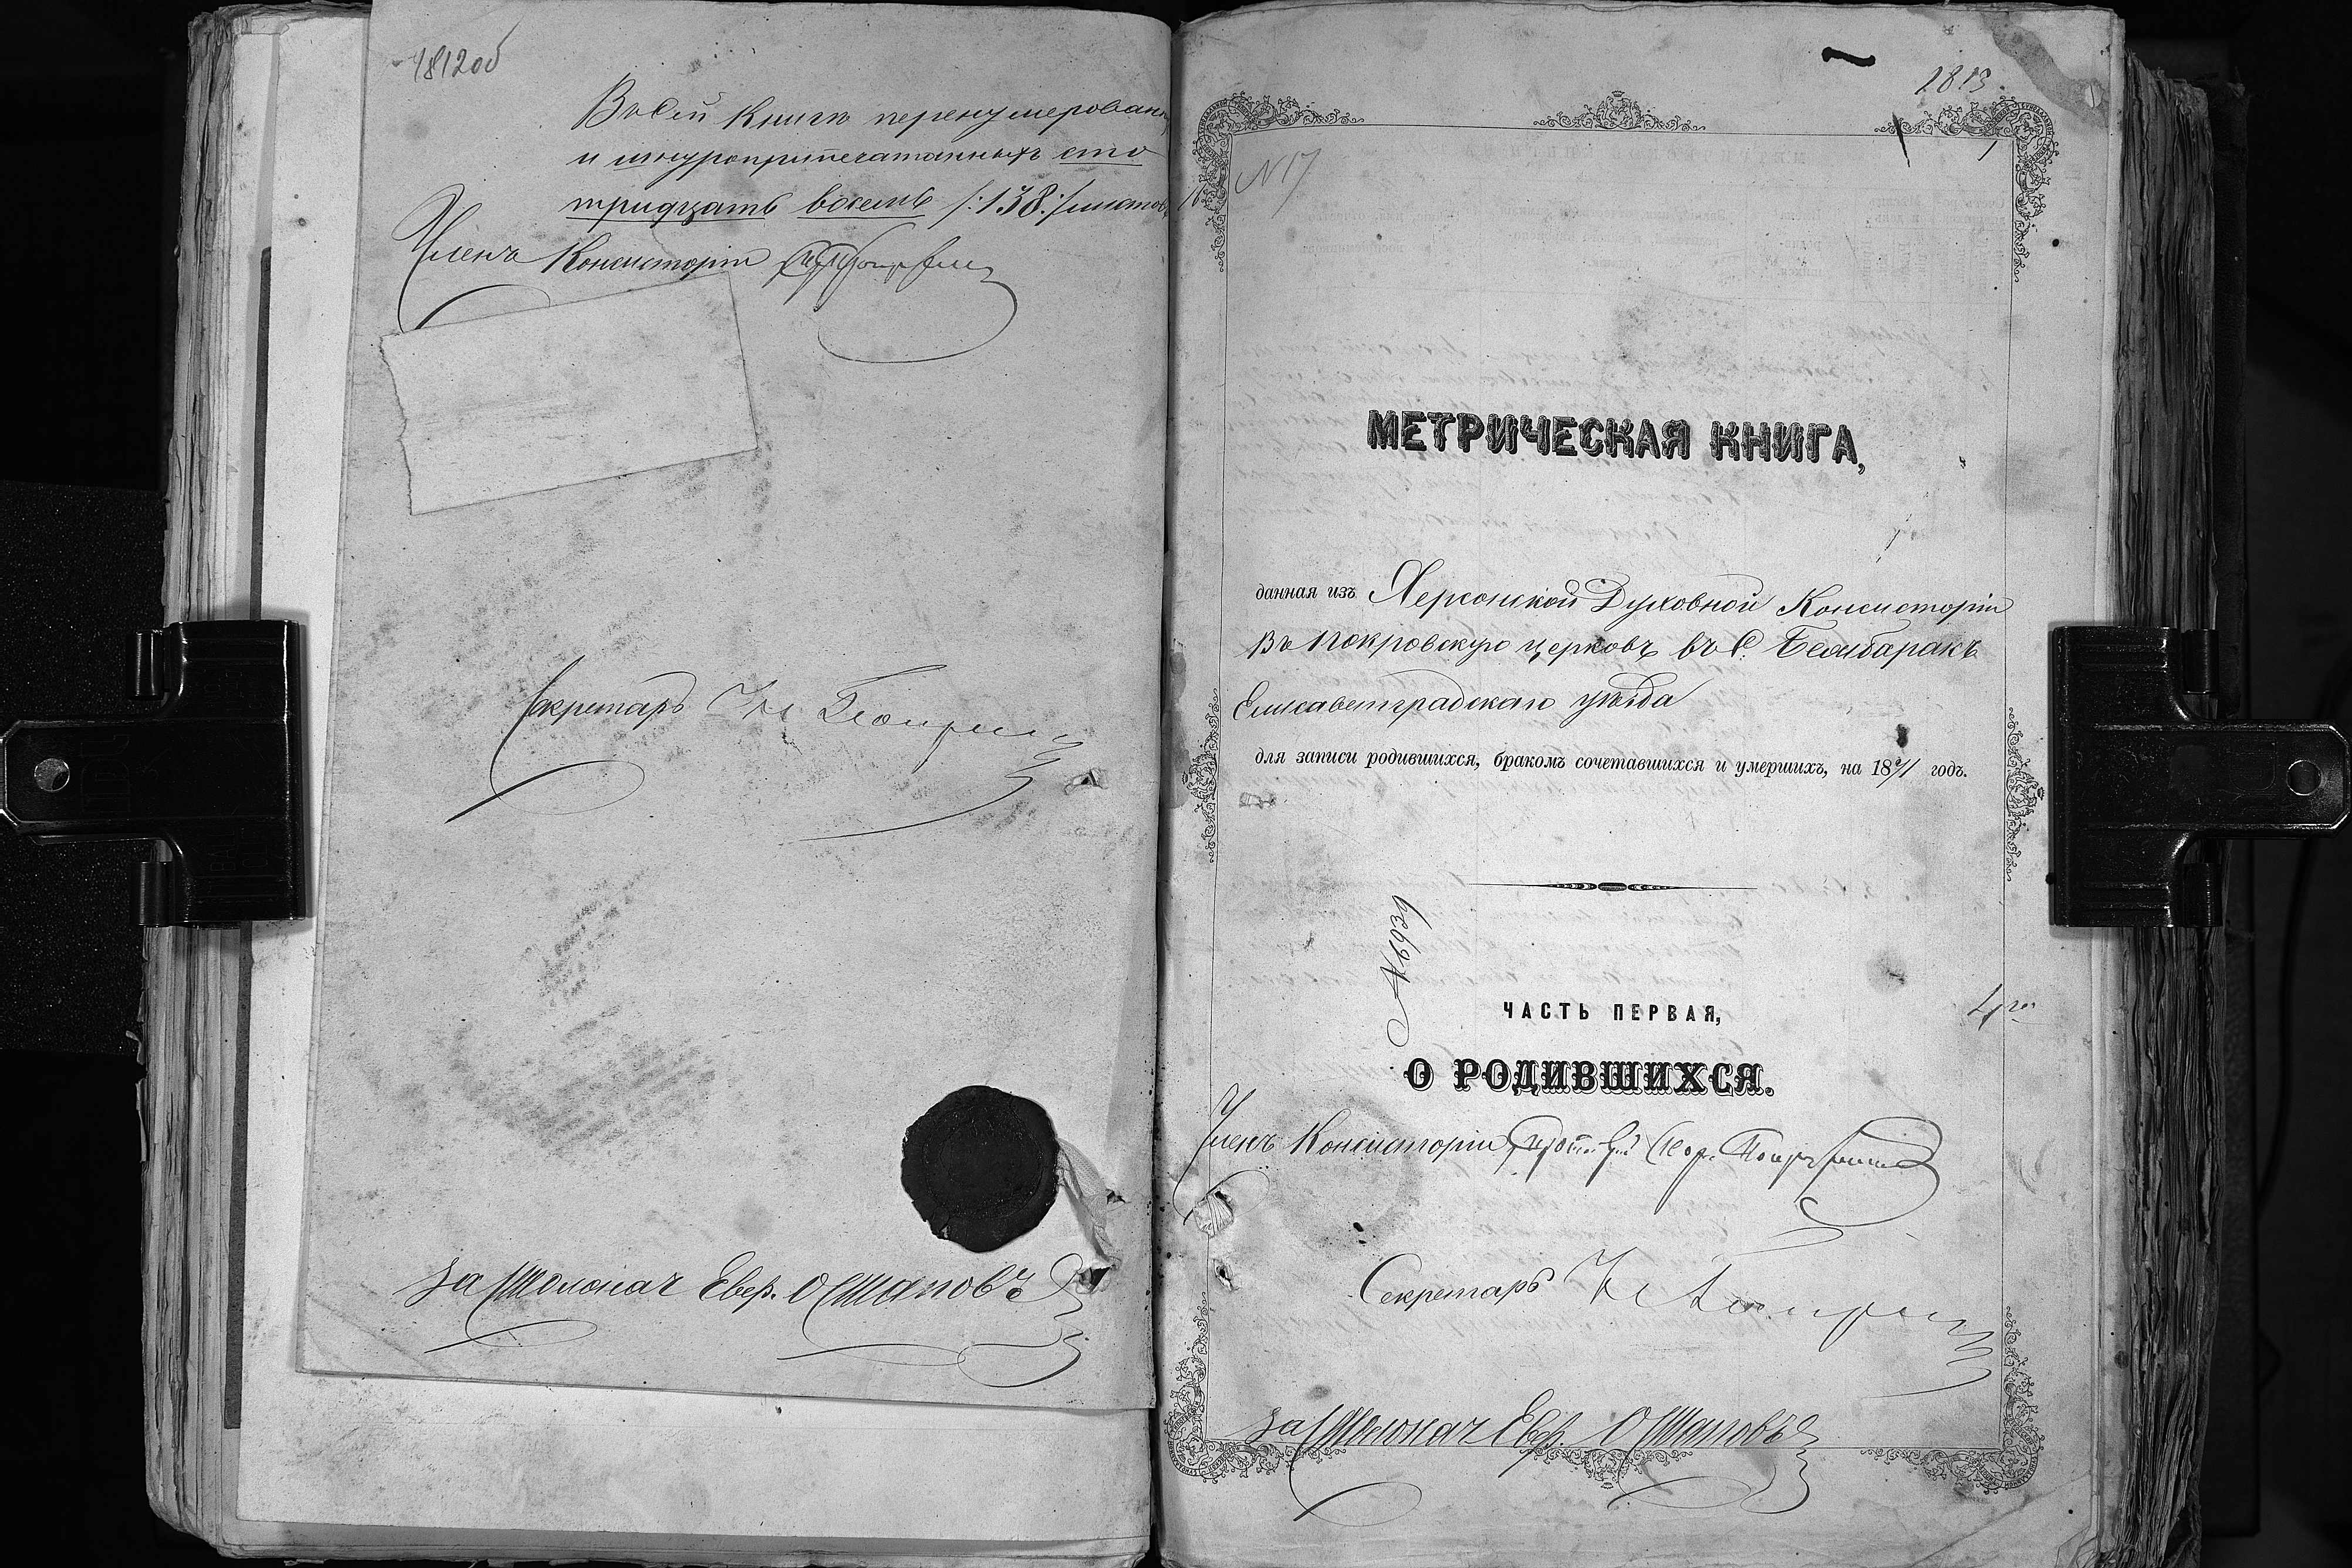 1812об
Въ сей книгѣ перенумерованн
и шнуроприпечатанныхъ сто
тридцать восемь /:138:/ листовъ
Членъ Консисторіи
Секретарь
За Столонач Евер. Остаповъ
1813
1
N 17
МЕТРИЧЕСКАЯ КНИГА,
данная изъ Херсонской Духовной Консисторіи
въ Покровскую церковь въ с.
Елисаветградскаго уѣзда
для записи родившихся, бракомъ сочетавшихся и умершихъ, на 18 годъ.
№ 6939
ЧАСТЬ ПЕРВАЯ,
О РОДИВШИХСЯ.
Членъ Консисторіи
Секретарь
За Столонач Евер. Остаповъ